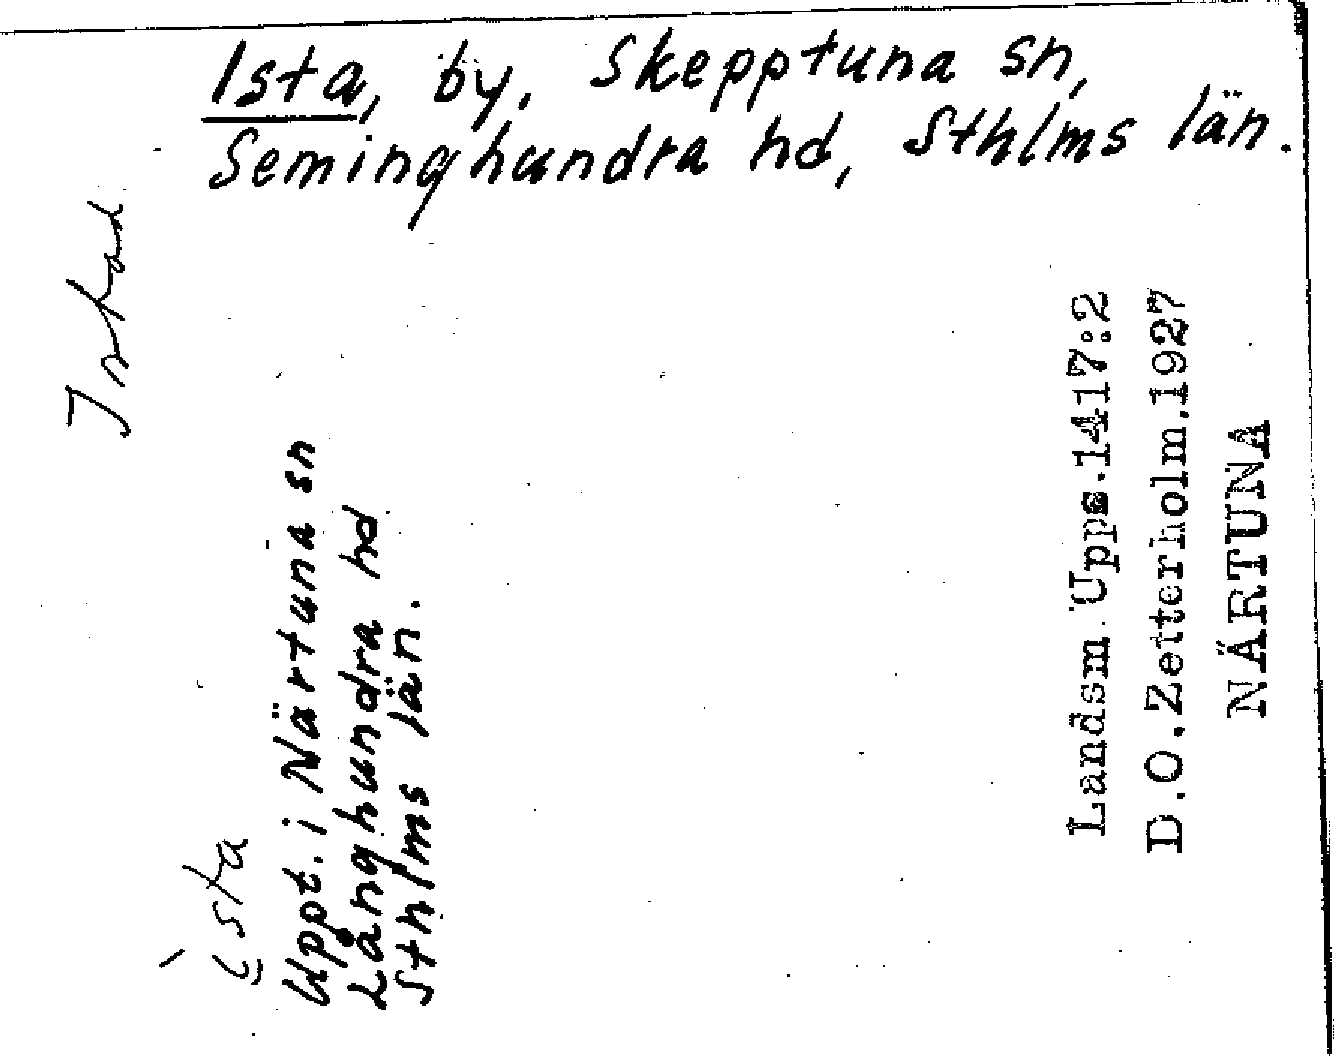 Ista, by, Skepptuna sn,
Seminghundra hd, Sthlms län.
ista
Uppt. i Närtuna sn
Långhundra hd
Sthlms län.
Landsm. Upps.1417:2
D.O.Zetterholm.1927
NÄRTUNA